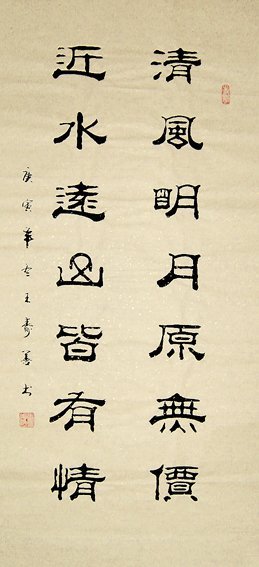 清風明月原無價
近水遠山皆有情
庚寅年冬王壽善书